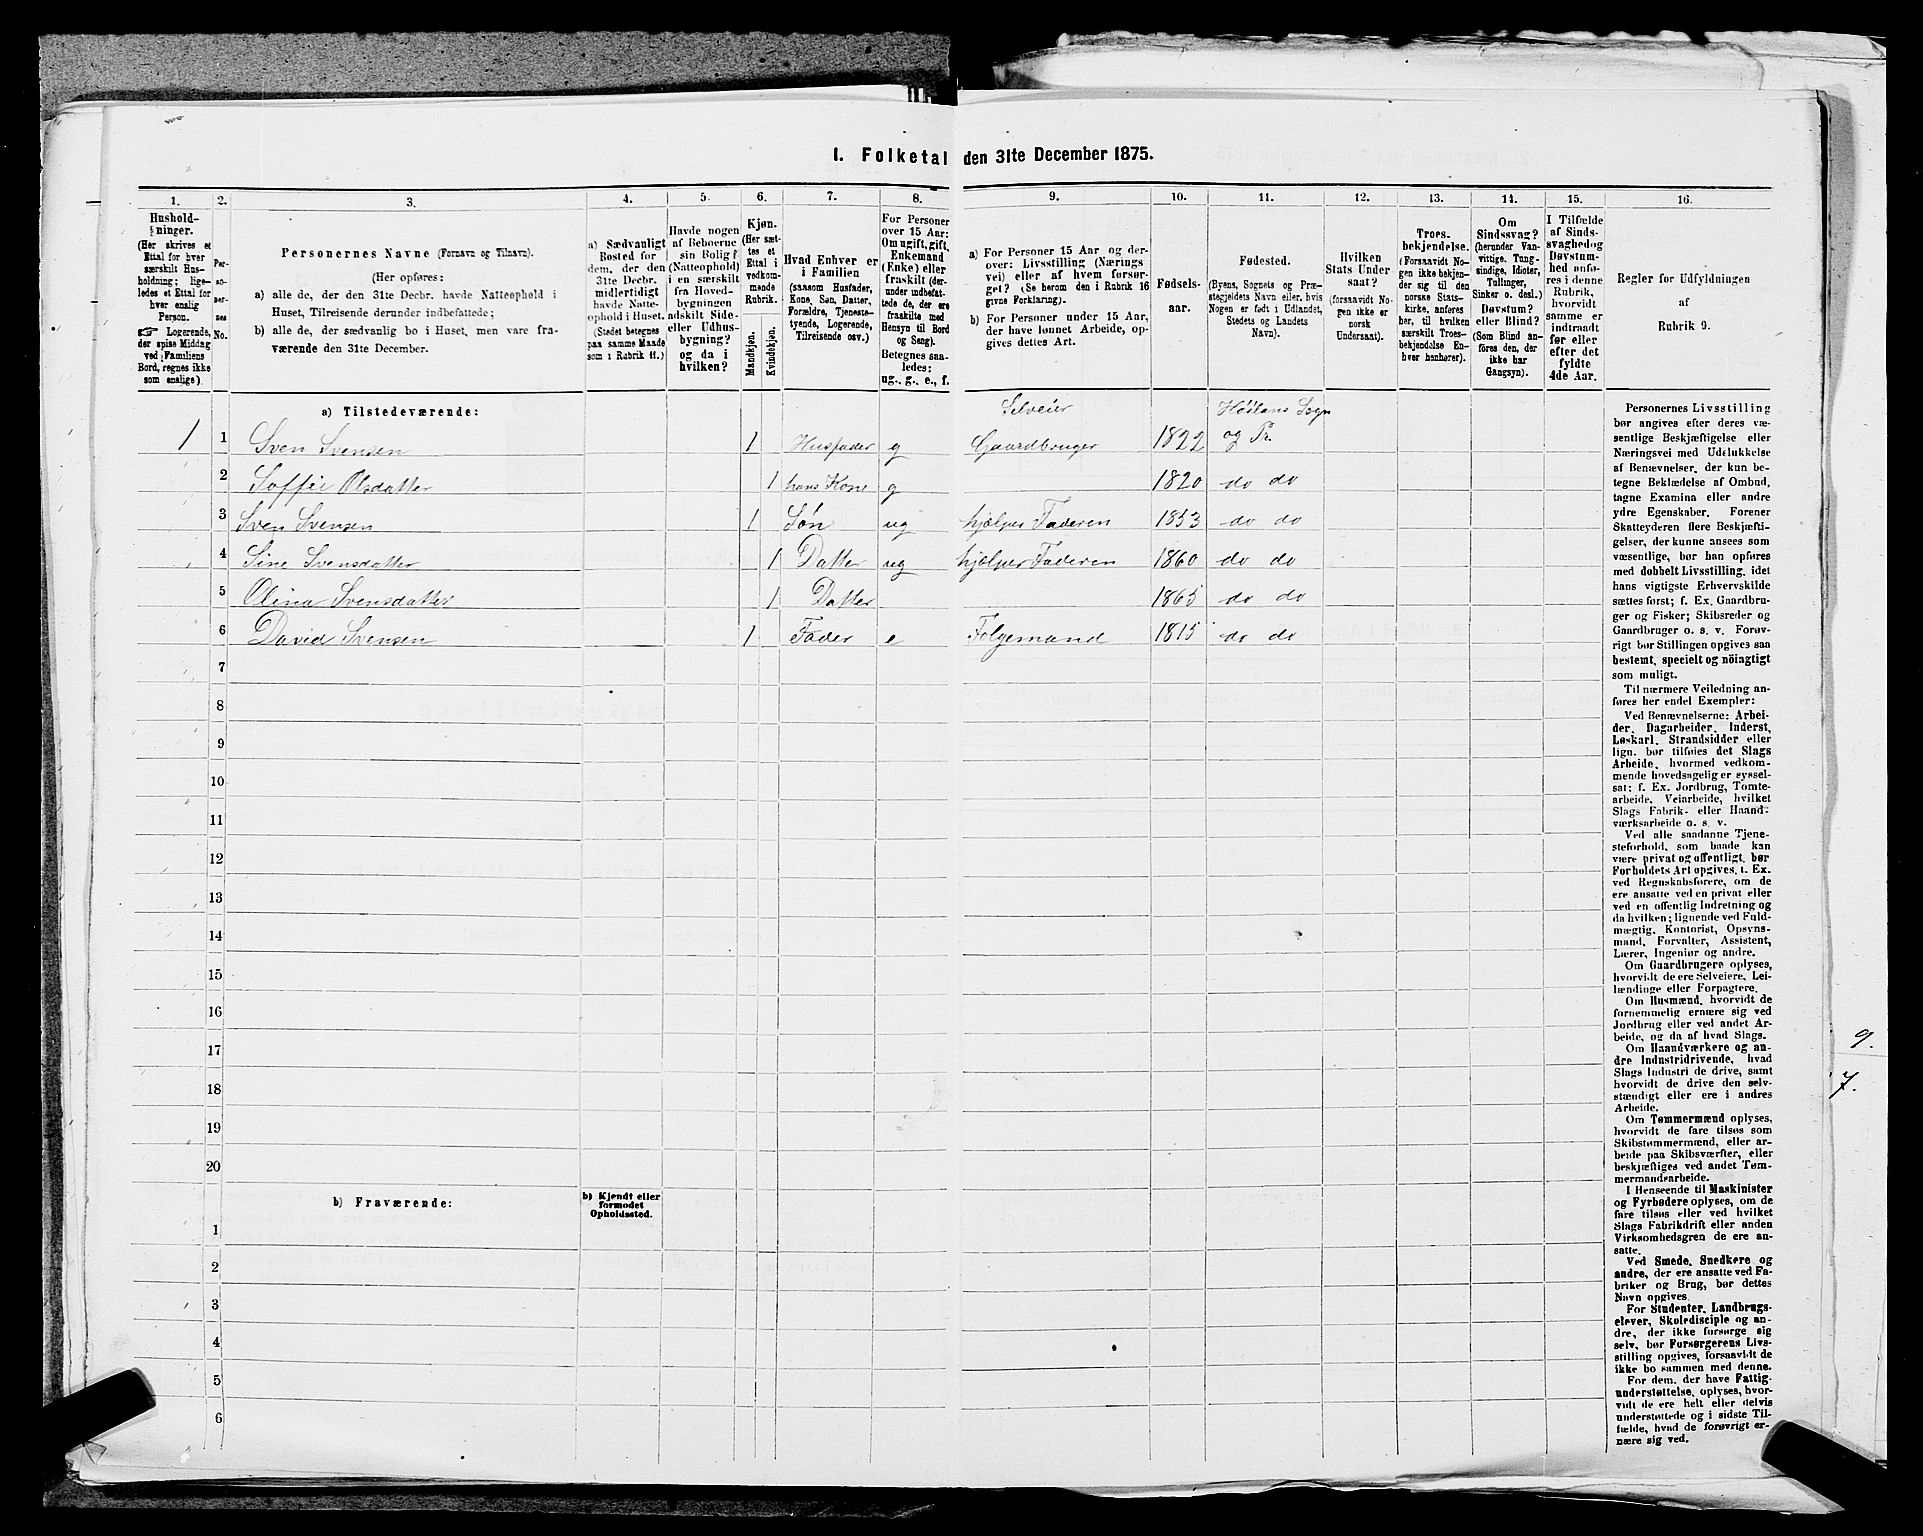 I. Folketal den 31te December 1875.
1.
2.
3.
4.
5.
6.
7.
8.
9.
10.
11.
12.
13.
14.
15.
16.
Hushold-
ninger.
(Her skrives et
Ettal for hver
særskilt Hus-
holdning; lige-
ledes et Ettal for
hver enslig
Person.
☞ Logerende,
der spise Middag
ved Familiens
Bord, regnes ikke
som enslige).
Per-
so-
ner-
nes
No.
Personernes Navne (Fornavn og Tilnavn).
(Her opføres:
a) alle de, der den 31te Decbr. havde Natteophold i
Huset, Tilreisende derunder indbefattede;
b) alle de, der sædvanlig bo i Huset, men vare fra-
værende den 31te December.
a) Sædvanligt
Bosted for
dem, der den
31te Decbr.
midlertidigt
havde Natte-
ophold i Huset.
(Stedet betegnes
paa samme Maade
som i Rubrik 11.)
Havde nogen
af Beboerne
sin Bolig
(Natteophold)
i en særskilt
fra Hoved-
bygningen
adskilt Side-
eller Udhus-
bygning?
og da i
hvilken?
Kjøn.
(Her sæt-
tes et
Ettal i
vedkom-
mende
Rubrik.
Mandkjøn.
Kvindekjøn.
Hvad Enhver er
i Familien
(saasom Husfader,
Kone, Søn, Datter,
Forældre, Tjeneste-
tyende, Logerende,
Tilreisende osv.)
For Personer
over 15 Aar:
Om ugift, gift,
Enkemand
(Enke) eller
fraskilt (der-
under indbefat-
tede de, der ere
fraskilte med
Hensyn til Bord
og Seng).
Betegnes saa-
ledes:
ug., g., e., f.
a) For Personer 15 Aar og der-
over: Livsstilling (Nærings
vei) eller af hvem forsør-
get? (Se herom den i Rubrik 16
givne Forklaring).
b) For Personer under 15 Aar,
der have lønnet Arbeide, op-
gives dettes Art.
Fødsels-
aar.
Fødested.
(Byens, Sognets og Præ-
stegjeldets Navn eller, hvis
Nogen er født i Udlandet,
Stedets og Landets
Navn).
Hvilken
Stats Under-
saat?
(forsaavidt No-
gen ikke er
norsk
Undersaat).
Troes-
bekjendelse.
(Forsaavidt No-
gen ikke bekjen-
der sig til den
norske Stats-
kirke, anføres
her, til hvilken
særskilt Troes-
bekjendelse En-
hver henhører).
Om
Sindssvag?
(herunder Van-
vittige, Tung-
sindige, Idioter,
Tullinger,
Sinker o. desl.)
Døvstum?
eller Blind?
(Som Blind an-
føres den, der
ikke har
Gangsyn).
I Tilfælde
af Sinds-
svaghed og
Døvstum-
hed anfø-
res i denne
Rubrik,
hvorvidt
samme er
indtraadt
før eller
efter det
fyldte
4de Aar.
Regler for Udfyldningen
af
Rubrik 9.
a) Tilstedeværende:
Selveier Høilans Sogn
1 1 Sven Svensen 1 Husfader g Gaardbruger 1822 og Pr.
2 Soffie Olsdatter 1 hans Kone g 1820 do do
3 Sven Svensen 1 Søn ug hjælper Faderen 1853 do do
4 Sine Svensdatter 1 Datter ug hjælper Faderen 1860 do do
5 Olina Svensdatter 1 Datter 1865 do do
6 David Svensen 1 Fader e Følgemand 1815 do do
7
8
9
10
11
12
13
14
15
16
17
18
19
20
b) Fraværende:
b) Kjendt eller
formodet
Opholdssted.
1
2
3
4
5
6
Personernes Livsstilling
bør angives efter deres væ-
sentlige Beskjæftigelse eller
Næringsvei med Udelukkelse
af Benævnelser, der kun be-
tegne Beklædelse af Ombud,
tagne Examina eller andre
ydre Egenskaber. Forener
Skatteyderen flere Beskjæfti-
gelser, der kunne ansees som
væsentlige, bør han opføres
med dobbelt Livsstilling, idet
hans vigtigste Erhvervskilde
sættes først; f. Ex. Gaardbru-
ger og Fisker; Skibsreder og
Gaardbruger o. s. v. Forøv-
rigt bør Stillingen opgives saa
bestemt, specielt og nöiagtigt
som muligt.
Til nærmere Veiledning an-
føres her endel Exempler:
Ved Benævnelserne: Arbei-
der, Dagarbeider, Inderst,
Løskarl, Strandsidder eller
lign. bør tilføies det Slags
Arbeide, hvormed vedkom-
mende hovedsagelig er syssel-
sat; f. Ex. Jordbrug, Tomte-
arbeide, Veiarbeide, hvilket
Slags Fabrik- eller Haand-
værksarbeide o. s. v.
Ved alle saadanne Tjene-
steforhold, som baade kan
være privat og offentligt, bør
Forholdets Art opgives, t. Ex.
ved Regnskabsførere, om de
ere ansatte ved en privat eller
ved en offentlig Indretning og
da hvilken; lignende ved Fuld-
mægtig, Kontorist, Opsyns-
mand, Forvalter, Assistent,
Lærer, Ingeniør og andre.
Om Gaardbrugere oplyses,
hvorvidt de ere Selveiere, Lei-
lændinge eller Forpagtere.
Om Husmænd, hvorvidt de
fornemmelig ernære sig ved
Jordbrug eller ved andet Ar-
beide, og da af hvad Slags.
Om Haandværkere og an-
dre Industridrivende, hvad
Slags Industri de drive, samt
hvorvidt de drive den selv-
stændigt eller ere i andres
Arbeide.
Om Tømmermænd oplyses,
hvorvidt de fare tilsøs som
Skibstømmermænd, eller ar-
beide paa Skibsværfter, eller
beskjæftiges ved andet Tøm-
mermandsarbeide.
I Henseende til Maskinister
og Fyrbødere oplyses, om de
fare tilsøs eller ved hvilket
Slags Fabrikdrift eller anden
Virksomhedsgren de ere an-
satte.
Ved Smede, Snedkere og
andre, der ere ansatte ved Fa-
briker og Brug, bør dettes
Navn opgives.
For Studenter, Landbrugs-
elever, Skoledisciple og an-
dre, der ikke forsørge sig
selv, bør Forsørgerens Livs-
stilling opgives, forsaavidt de
ikke bo sammen med denne.
For dem, der have Fattig-
understøttelse, oplyses, hvor-
vidt de ere helt eller delvis
understøttede og i sidste Til-
fælde, hvad de forøvrigt er-
nære sig ved.
9.
7.